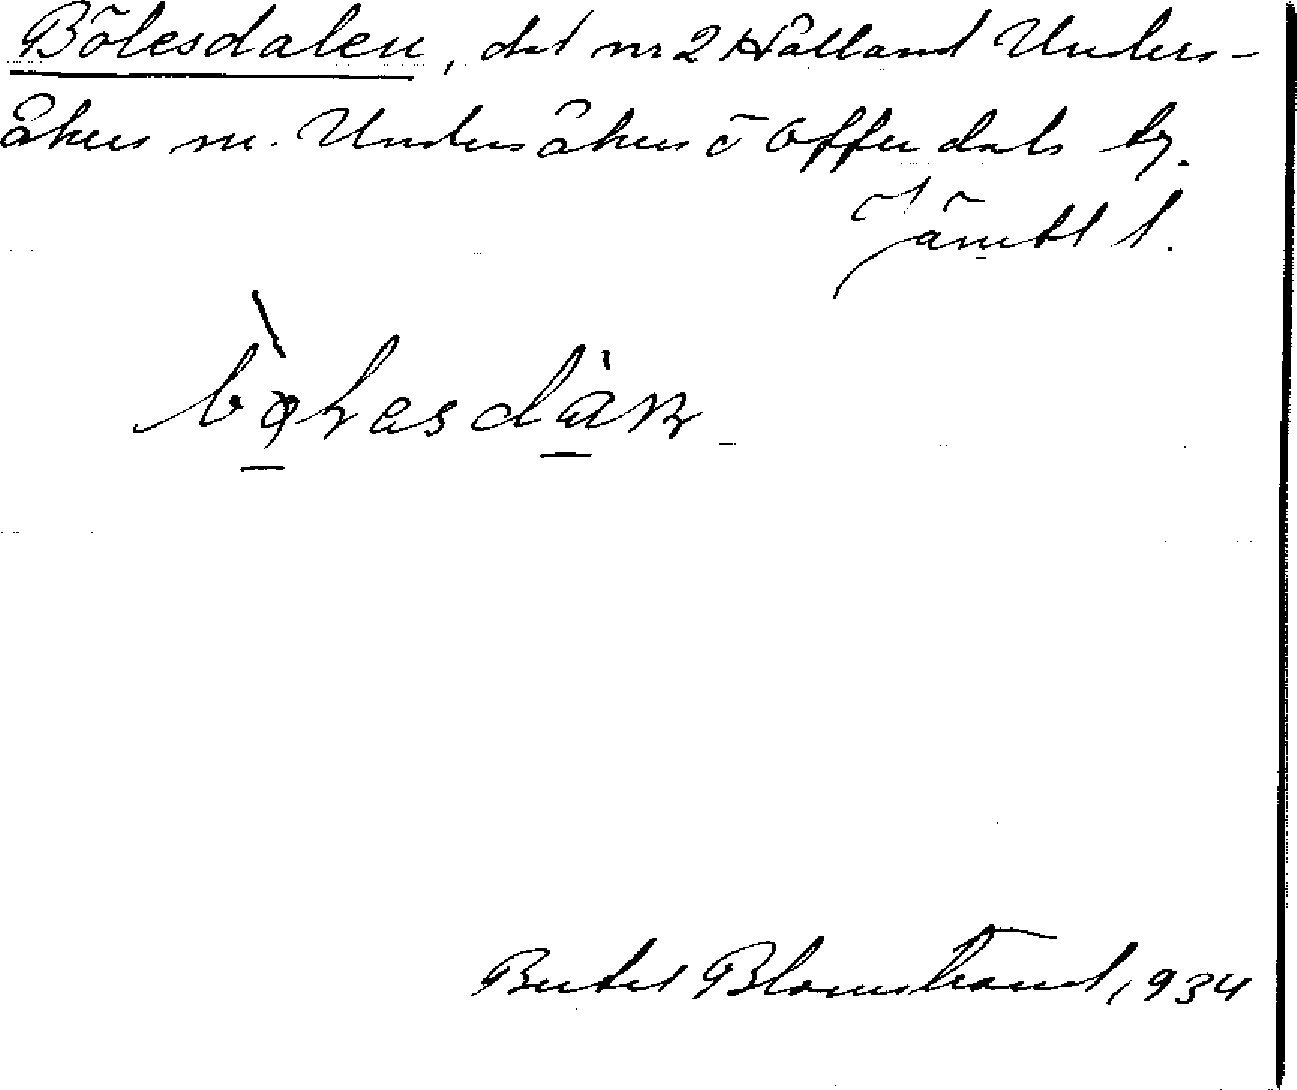 Bölesdalen, del nr 2 Hålland Unders-
åkers sn. Undersåkers o Offerdals tg.
Jämtl l.
Bertel Blomstrand, 1934